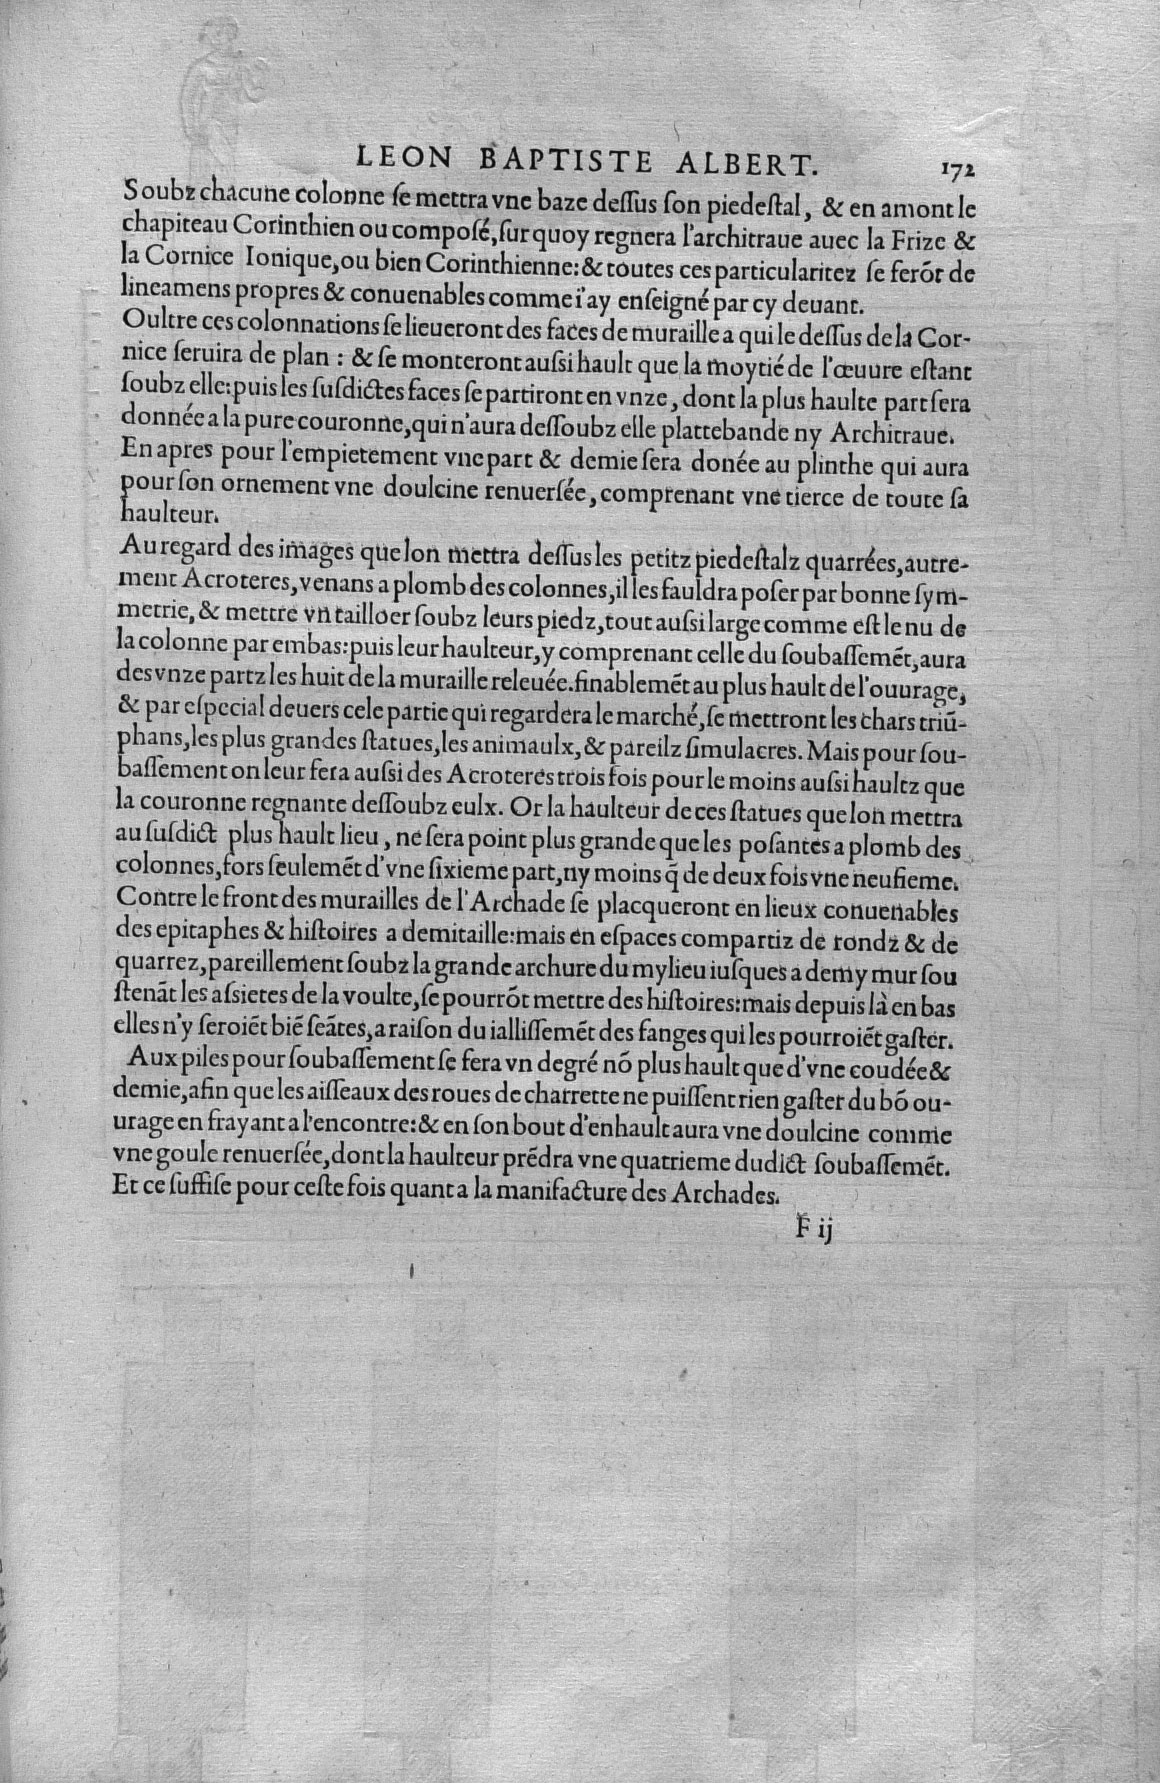 LEON BAPTISTE ALBERT. 172
Soubz chacune colonne ſe mettra vne baze deſſus ſon piedeſtal, & en amont le
chapiteau Corinthien ou compoſé, ſur quoy regnera l'architraue auec la Frize &
la Cornice Ionique, ou bien Corinthienne: & toutes ces particularitez ſe ferõt de
lineamens propres & conuenables comme i'ay enſeigné par cy deuant.
Oultre ces colonnations ſe lieueront des faces de muraille a qui le deſſus de la Cor-
nice ſeruira de plan : & ſe monteront auſsi hault que la moytié de l'œuure eſtant
ſoubz elle: puis les ſuſdictes faces ſe partiront en vnze, dont la plus haulte part ſera
donnée a la pure couronne, qui n'aura deſſoubz elle plattebande ny Architraue.
En apres pour l'empietement vne part & demie ſera donée au plinthe qui aura
pour ſon ornement vne doulcine renuerſée, comprenant vne tierce de toute ſa
haulteur.
Au regard des images que lon mettra deſſus les petitz piedeſtalz quarrées, autre-
ment Acroteres, venans a plomb des colonnes, il les fauldra poſer par bonne ſym-
metrie, & mettre vn tailloer ſoubz leurs piedz, tout auſsi large comme eſt le nu de
la colonne par embas: puis leur haulteur, y comprenant celle du ſoubaſſemẽt, aura
des vnze partz les huit de la muraille releuée. finablemẽt au plus hault de l'ouurage,
& par eſpecial deuers cele partie qui regardera le marché, ſe mettront les chars triũ-
phans, les plus grandes ſtatues, les animaulx, & pareilz ſimulacres. Mais pour ſou-
baſſement on leur fera auſsi des Acroteres trois fois pour le moins auſsi haultz que
la couronne regnante deſſoubz eulx. Or la haulteur de ces ſtatues que lon mettra
au ſuſdict plus hault lieu, ne ſera point plus grande que les poſantes a plomb des
colonnes, fors ſeulemẽt d'vne ſixieme part, ny moins q̃ de deux fois vne neufieme.
Contre le front des murailles de l'Archade ſe placqueront en lieux conuenables
des epitaphes & hiſtoires a demitaille: mais en eſpaces compartiz de rondz & de
quarrez, pareillement ſoubz la grande archure du mylieu iuſques a demy mur ſou
ſtenãt les aſsietes de la voulte, ſe pourrõt mettre des hiſtoires: mais depuis là en bas
elles n'y ſeroiẽt biẽ ſeãtes, a raiſon du ialliſſemẽt des fanges qui les pourroiẽt gaſter.
Aux piles pour ſoubaſſement ſe fera vn degré nõ plus hault que d'vne coudée &
demie, afin que les aiſſeaux des roues de charrette ne puiſſent rien gaſter du bõ ou-
urage en frayant a l'encontre: & en ſon bout d'enhault aura vne doulcine comme
vne goule renuerſée, dont la haulteur prẽdra vne quatrieme dudict ſoubaſſemẽt.
Et ce ſuffiſe pour ceſte fois quant a la manifacture des Archades.
F ij